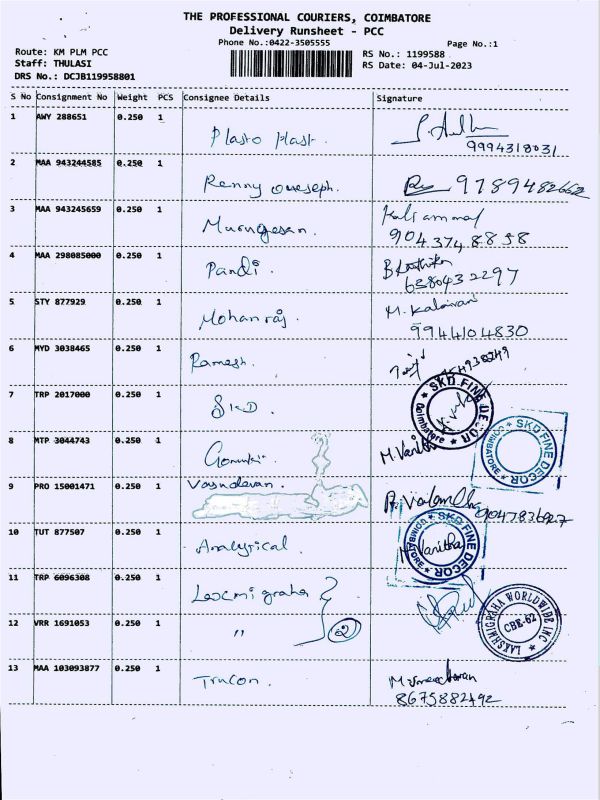 THE PROFESSIONAL COURIERS, COIMBATORE
Delivery Runsheet - PCC
Phone No.:0422-3505555
Page No.:1
Route: KM PLM PCC
Staff: THULASI
DRS No.: DCJB119958801
RS No.: 1199588
RS Date: 04-Jul-2023
S No Consignment No Weight PCS Consignee Details Signature
1 AWY 288651 0.250 1
Plasto Plast.
9994318031
2 MAA 943244585 0.250 1
Renny Ouseseph.
3 MAA 943245659 0.250 1
Murugesan.
Kaliammal
9043748858
4 MAA 298085000 0.250 1
Pandi.
6380432297
5 STY 877929 0.250 1
Mohanraj.
M. Kalaivani
9944104830
6 MYD 3038465 0.250 1
Ramesh.
7 TRP 2017000 0.250 1
SKD.
SKD FINE DECOR
Coimbatore
8 MTP 3044743 0.250 1
M. Vanitha
SKD FINE DECOR
COIMBATORE
9 PRO 15001471 0.250 1
Vasudevan.
9047836927
10 TUT 877507 0.250 1
Analytical.
Vanitha
SKD FINE DECOR
COIMBATORE
11 TRP 6096308 0.250 1
Laxmi graha
12 VRR 1691053 0.250 1
"
2
LAKSHMIGRAHA WORLDWIDE INC
CBE-62
13 MAA 103093877 0.250 1
Trucon.
8675882492